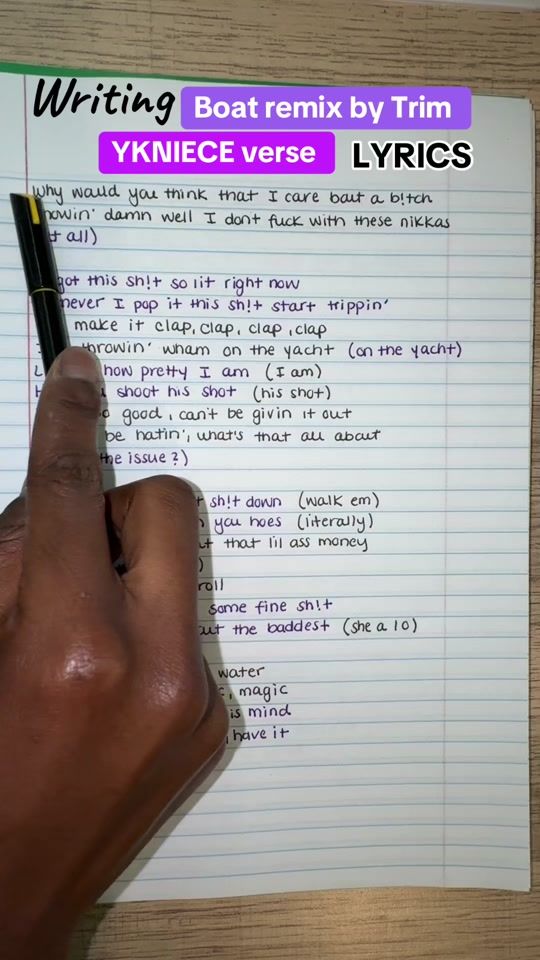 Writing Boat remix by Trim
YKNIECE verse LYRICS
why would you think that I care bout a b!tch
damn well I dont fuck with these nikkas
all)
got this sh!t so lit right now
I pop it this sh!t start trippin'
make it clap, clap, clap, clap
throwin' wham on the yacht (on the yacht)
how pretty I am (I am)
shoot his shot (his shot)
good, can't be givin it out
be hatin', what's that all about
the issue?)
sh!t down (walk em)
you hoes (literally)
that lil ass money
)
roll
some fine sh!t
the baddest (she a 10)
water
, magic
is mind
, have it